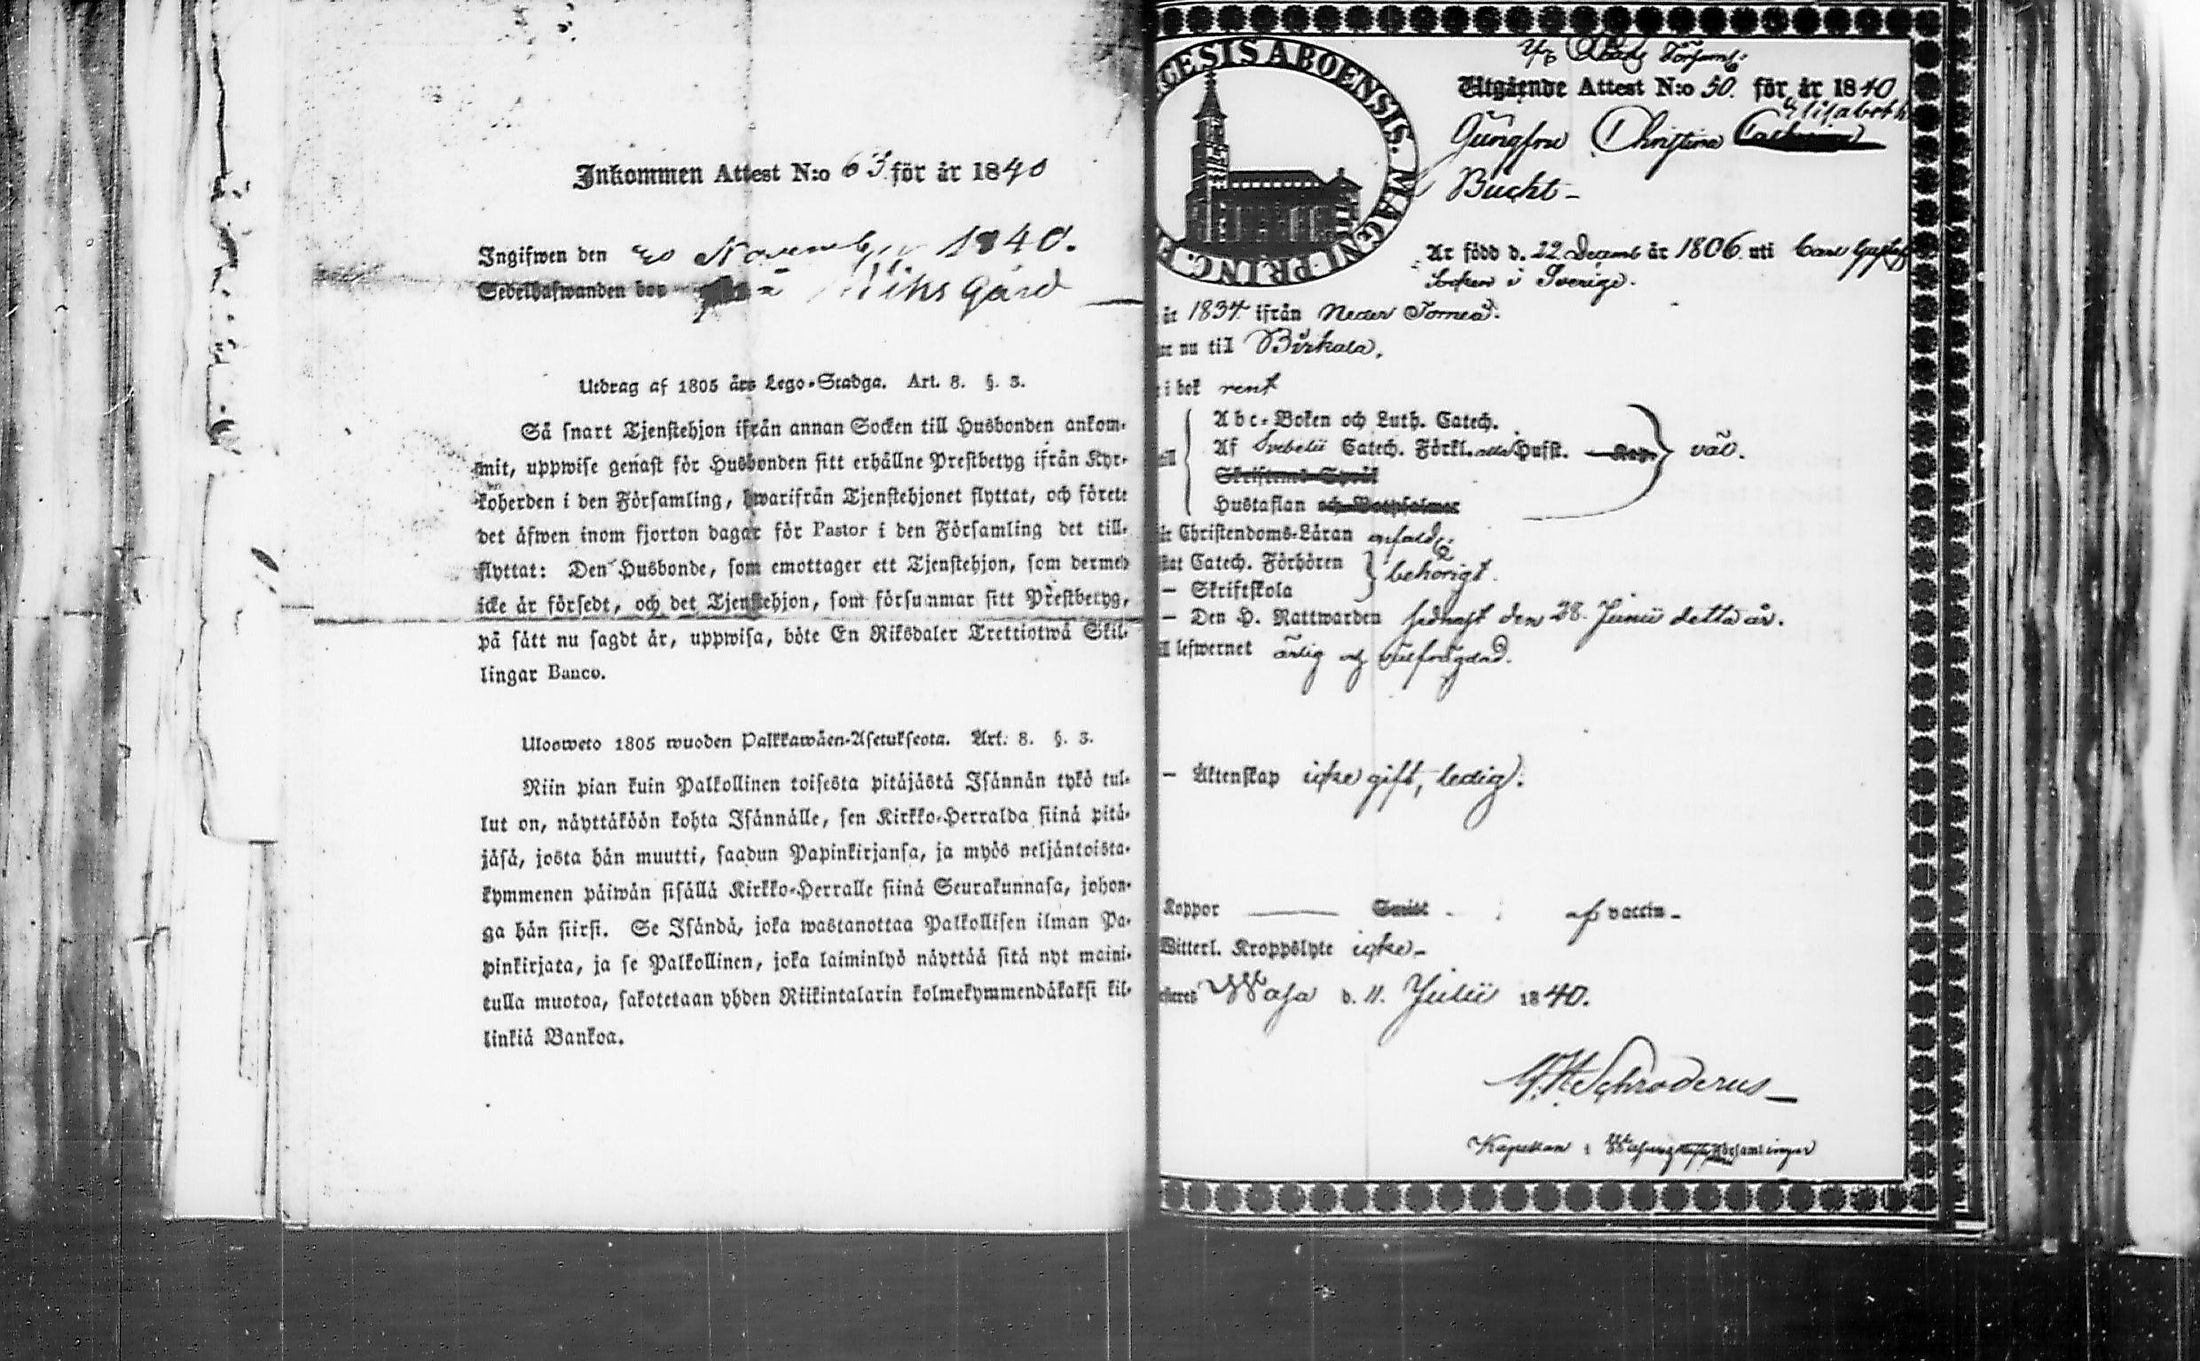 Inkommen Attest N:o 63 för år 1840
Ingifwen den 20 November 1840.
Sedelhafwanden bor å Wiks gård
Utdrag af 1805 års Lego-Stadga. Art. 8. §. 3.
Så snart Tjenstehjon ifrån annan Socken till Husbonden ankom-
mit, uppwise genast för Husbonden sitt erhållne Prestbetyg ifrån Kyr-
koherden i den Församling, hwarifrån Tjenstehjonet flyttat, och förete
det äfwen inom fjorton dagar för Pastor i den Församling det till-
flyttat: Den Husbonde, som emottager ett Tjenstehjon, som dermed
icke är försedt, och det Tjenstehjon, som försummar sitt Prestbetyg,
på sätt nu sagdt är, uppwisa, böte En Riksdaler Trettiotwå Skil-
lingar Banco.
Ulosweto 1805 wuoden Palkkawäen-Asetuksesta. Art. 8. §. 3.
Niin pian kuin Palkollinen toisesta pitäjästä Isännän tykö tul-
lut on, näyttäköön kohta Isännälle, sen Kirkko-Herralda siinä pitä-
jäsä, josta hän muutti, saadun Papinkirjansa, ja myös neljäntoista-
kymmenen päiwän sisällä Kirkko-Herralle siinä Seurakunnasa, johon-
ga hän siirsi. Se Isändä, joka wastanottaa Palkollisen ilman Pa-
pinkirjata, ja se Palkollinen, joka laiminlyö näyttää sitä nyt maini-
tulla muotoa, sakotetaan yhden Riikintalarin kolmekymmendäkaksi kil-
linkiä Bankoa.
CESIS ABOENSIS. MAGNI PRINC. F
Utgående Attest N:o 50. för år 1840
Elisabeth
Jungfru Christina
Bucht-
Är född d. 22 Decemb år 1806 uti Carl Gustaf
Socken i Sverige.
år 1834 ifrån Neder Torneå.
nu till Birkala.
i bok rent
Abc-Boken och Luth. Catech.
Af Svebelii Catech. Förkl. Hufst. väl.
Skriftens Språk
Hustaflan och Botpsalmer
Christendoms-Läran
Catech. Förhören behörigt.
— Skriftskola
— Den H. Nattwarden sednast den 28. Junii detta år.
lefwernet ärlig och välfrägdad.
— Äktenskap icke gift, ledig.
Koppor af vaccin-
Witterl. Kroppslyte icke-
Wasa d. 11. Julii 1840.
Schroderus
Kapellan i